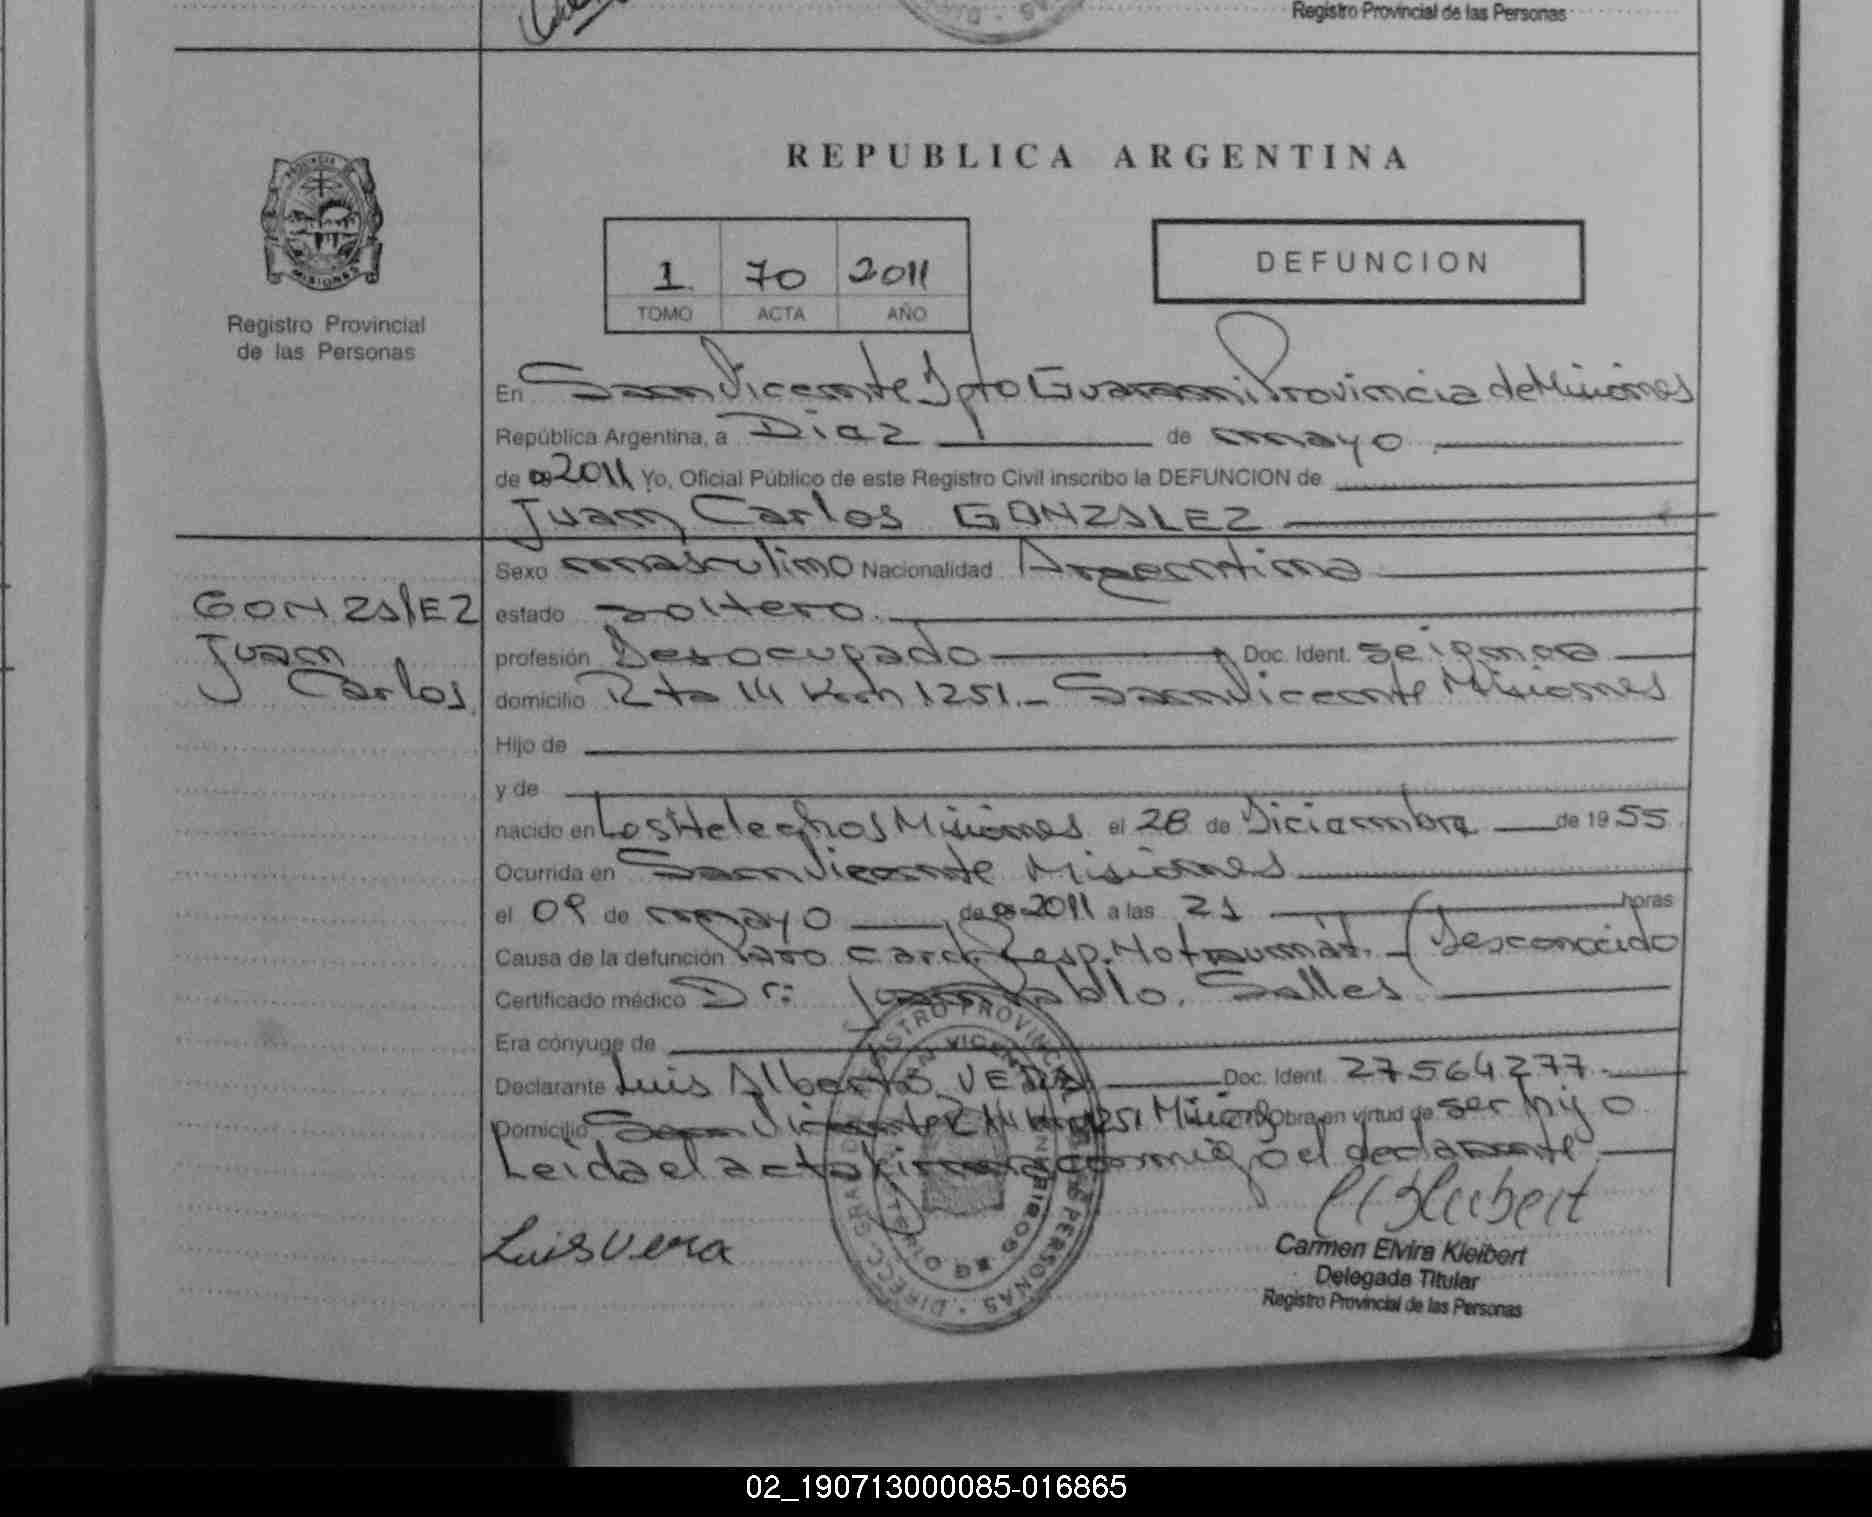 Registro Provincial de las Personas
REPUBLICA ARGENTINA
1 70 2011
TOMO ACTA AÑO
DEFUNCION
MISIONES
Registro Provincial
de las Personas
En San Vicente Dpto Guarani Provincia de Misiones
República Argentina, a Diez de mayo
de 2011 Yo, Oficial Público de este Registro Civil inscribo la DEFUNCION de
Juan Carlos GONZALEZ
Sexo masculino Nacionalidad Argentina
GONZALEZ
estado soltero
Juan
profesión Desocupado Doc. Ident. se ignora
Carlos
domicilio Rta 14 Km 1251.- San Vicente Misiones
Hijo de
y de
nacido en Los Helechos Misiones el 28 de Diciembre de 1955
Ocurrida en San Vicente Misiones
el 09 de mayo de 2011 a las 21 horas
Causa de la defunción Paro Card. Resp. No traumát. - (Desconocido
Certificado médico Dr: Juan Pablo. Salles
Era cónyuge de
Declarante Luis Alberto VERA Doc. Ident. 27.564.277.-
Domicilio San Vicente R 14 Km 1251 Misiones Obra en virtud de ser hijo
Leida el acta firma conmigo el declarante
Luis Vera
Carmen Elvira Kleibert
Delegada Titular
Registro Provincial de las Personas
02_190713000085-016865